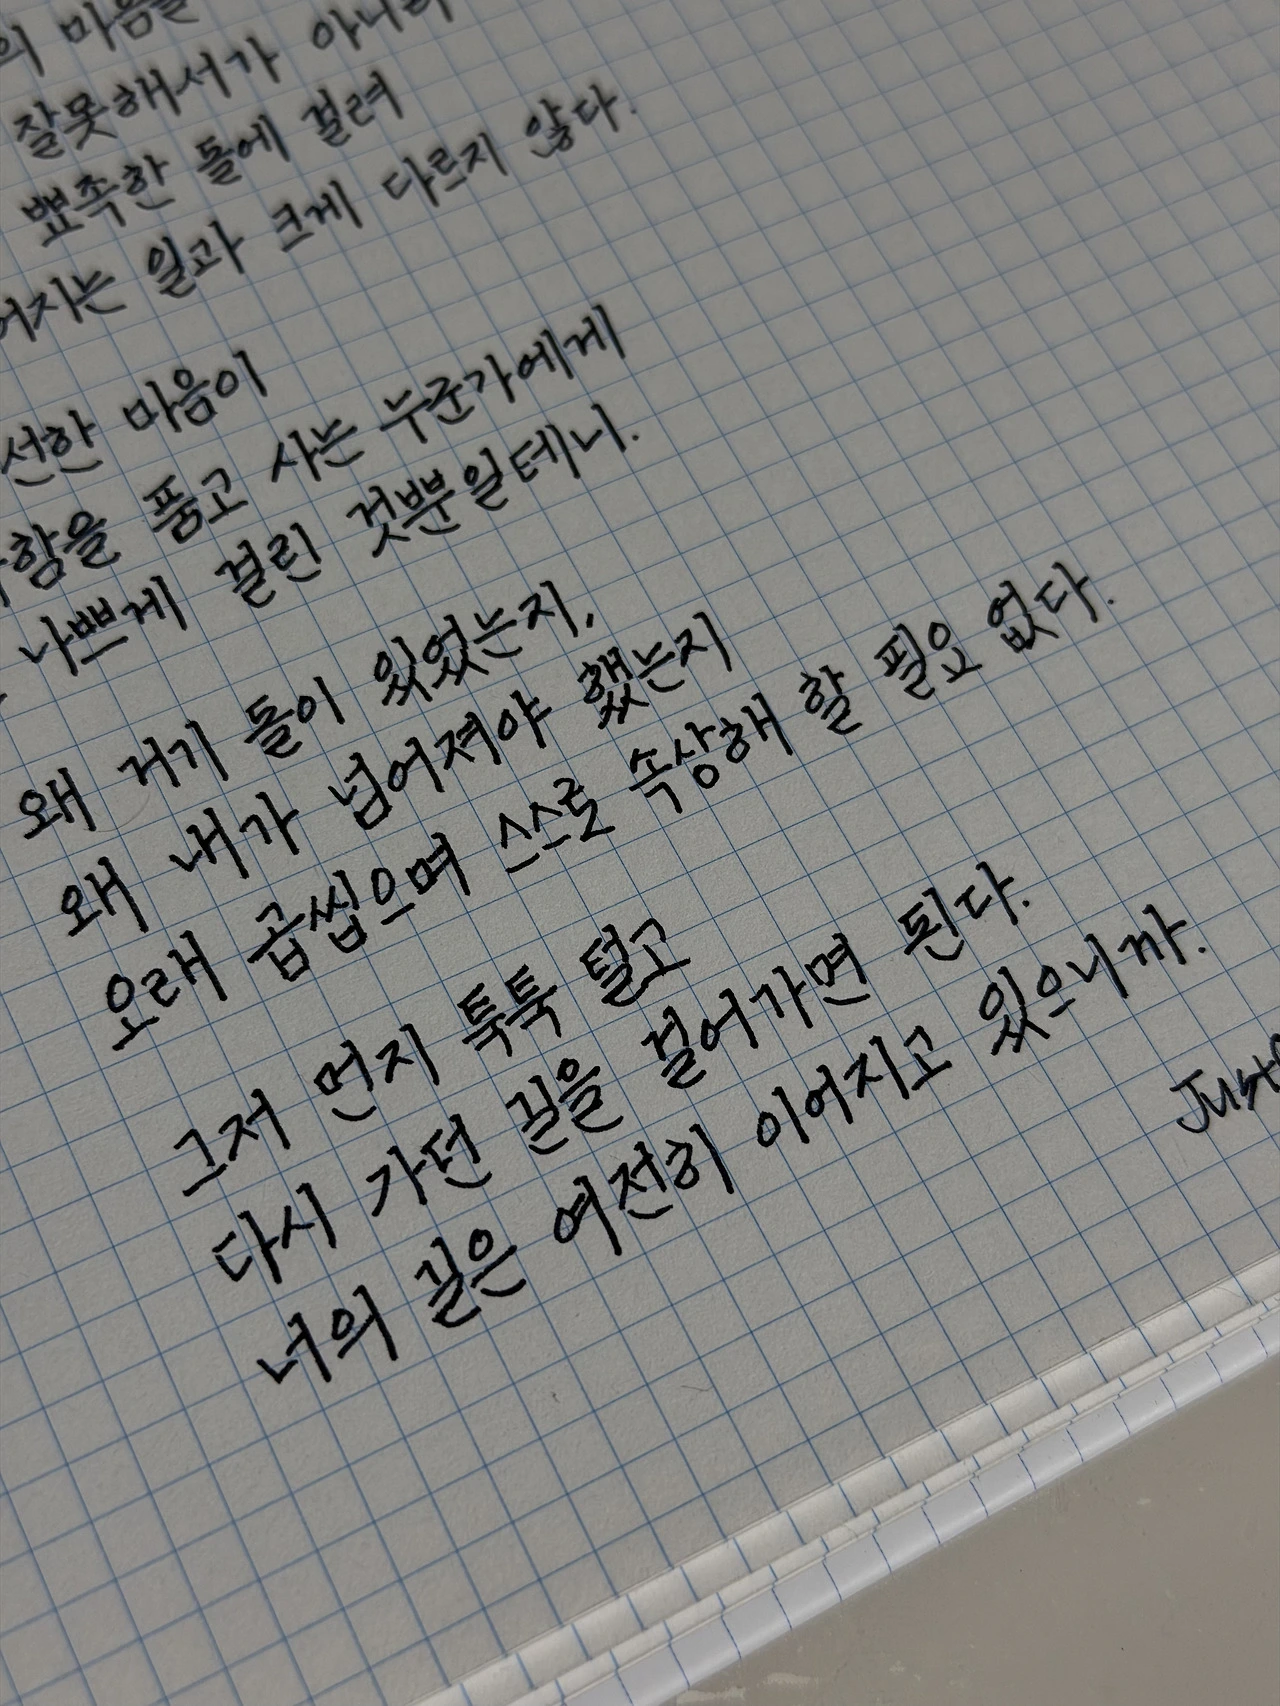 의 마음을
잘못해서가 아니라
뾰족한 돌에 걸려
어지는 일과 크게 다르지 않다.
선한 마음이
함을 품고 사는 누군가에게
나쁘게 걸린 것뿐일테니.
왜 거기 돌이 있었는지,
왜 내가 넘어져야 했는지
오래 곱씹으며 스스로 속상해 할 필요 없다.
그저 먼지 툭툭 털고
다시 가던 길을 걸어가면 된다.
너의 길은 여전히 이어지고 있으니까.